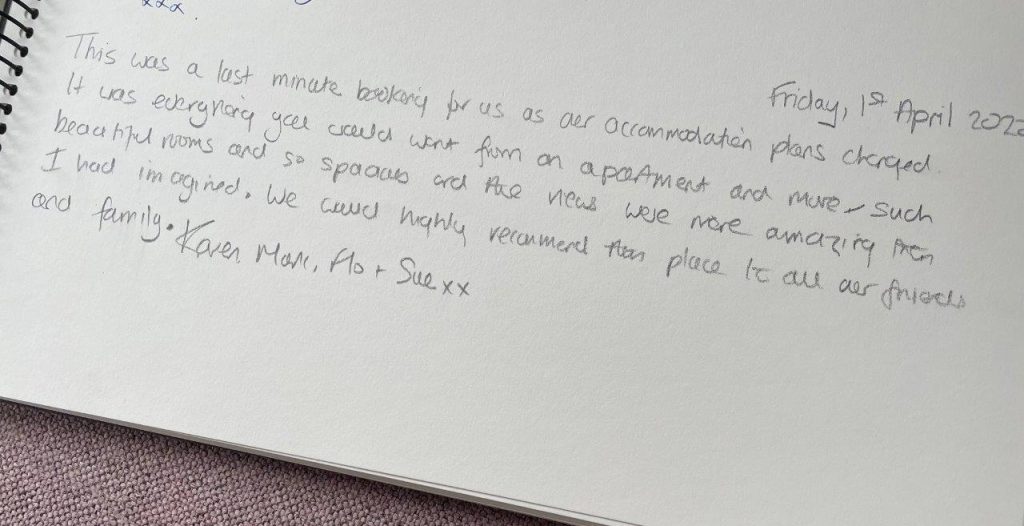 xxx.
Friday, 1st April 202
This was a last minute booking for us as our accommodation plans changed.
It was everything you could want from an apartment and more, such
beautiful rooms and so spacious and the views were more amazing then
I had imagined. We could highly recommend this place to all our friends
and family. Karen, Marc, Flo + Sue xx